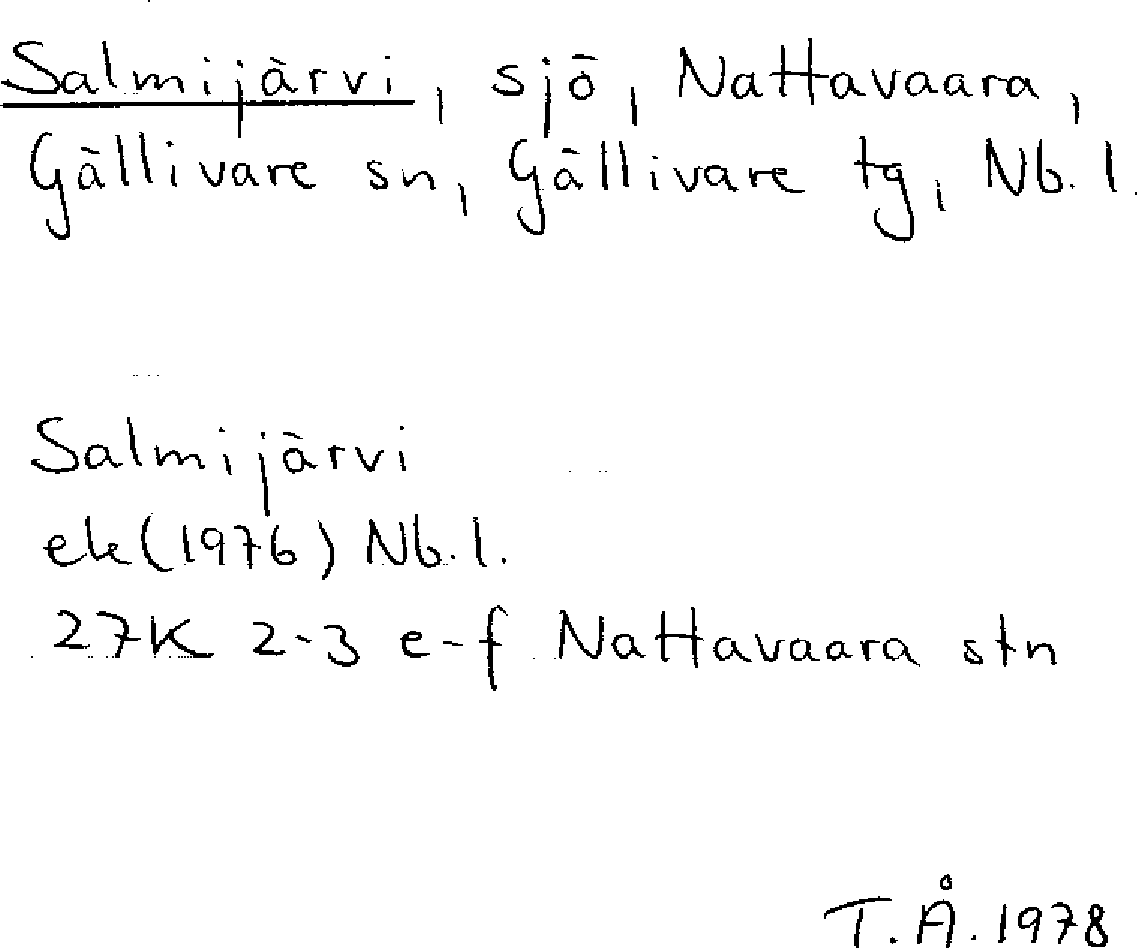 Salmijärvi, sjö, Nattavaara,
Gällivare sn, Gällivare tg, Nb. l.
Salmijärvi
ek (1976) Nb. l.
27K 2-3 e-f Nattavaara stn
T. Å. 1978